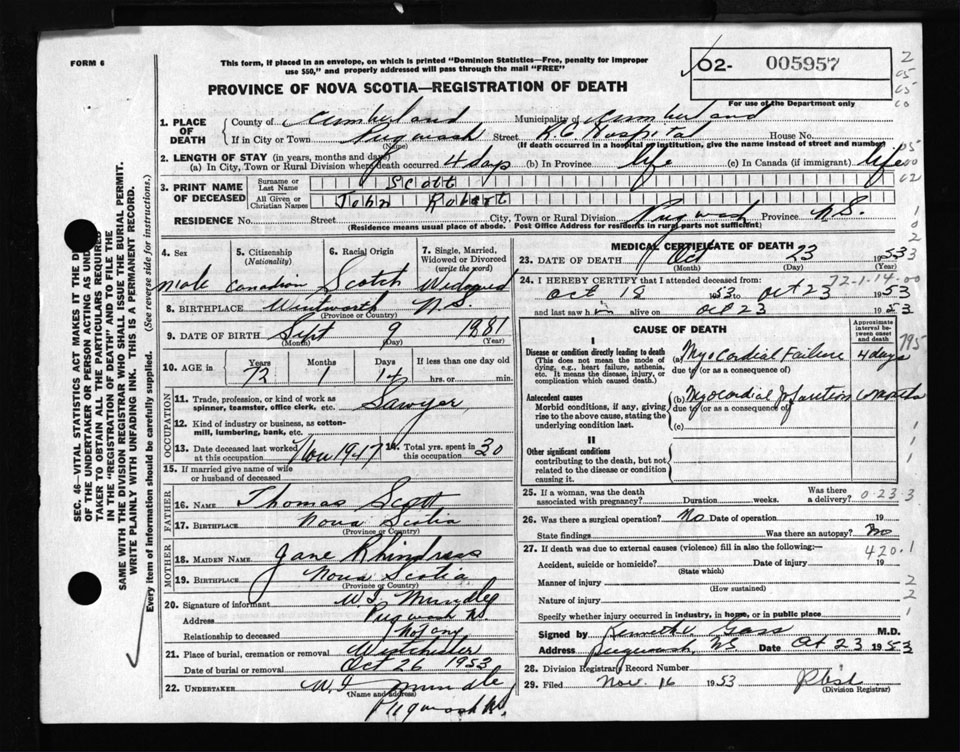 FORM 6
This form, if placed in an envelope, on which is printed "Dominion Statistics—Free, penalty for improper
use $50," and properly addressed will pass through the mail "FREE"
02- 005957
For use of the Department only
PROVINCE OF NOVA SCOTIA—REGISTRATION OF DEATH
1. PLACE OF DEATH County of Cumberland Municipality of Cumberland
If in City or Town Pugwash Street R.C. Hospital House No.
(Name) (If death occurred in a hospital or institution, give the name instead of street and number)
2. LENGTH OF STAY (in years, months and days)
(a) In City, Town or Rural Division where death occurred 4 days (b) In Province life (c) In Canada (if immigrant) life
3. PRINT NAME OF DECEASED Surname or Last Name Scott
All Given or Christian Names John Robert
RESIDENCE No. Street City, Town or Rural Division Pugwash Province N.S.
(Residence means usual place of abode. Post Office Address for residents in rural parts not sufficient)
4. Sex 5. Citizenship (Nationality) 6. Racial Origin 7. Single, Married, Widowed or Divorced (write the word)
Male Canadian Scotch Widowed
8. BIRTHPLACE Wentworth N.S.
(Province or Country)
9. DATE OF BIRTH Sept 9 1881
(Month) (Day) (Year)
10. AGE in Years Months Days If less than one day old
72 1 14 hrs. or min.
OCCUPATION
11. Trade, profession, or kind of work as
spinner, teamster, office clerk, etc. Sawyer
12. Kind of industry or business, as cotton-
mill, lumbering, bank, etc.
13. Date deceased last worked at this occupation Nov 1947 14. Total yrs. spent in this occupation 30
15. If married give name of wife
or husband of deceased
FATHER
16. NAME Thomas Scott
17. BIRTHPLACE Nova Scotia
(Province or Country)
MOTHER
18. MAIDEN NAME Jane
19. BIRTHPLACE Nova Scotia
(Province or Country)
20. Signature of informant
Address Pugwash NS.
Relationship to deceased Not any
21. Place of burial, cremation or removal Westchester
Date of burial or removal Oct 26 1953
22. UNDERTAKER
(Name and address)
Pugwash NS.
MEDICAL CERTIFICATE OF DEATH
23. DATE OF DEATH Oct 23 1953
(Month) (Day) (Year)
24. I HEREBY CERTIFY that I attended deceased from:
Oct 18 1953 to Oct 23 1953
and last saw him alive on Oct 23 1953
CAUSE OF DEATH Approximate interval between onset and death
I
Disease or condition directly leading to death
(This does not mean the mode of
dying, e.g., heart failure, asthenia,
etc. It means the disease, injury, or
complication which caused death.)
(a) Myocardial Failure 4 days
due to (or as a consequence of)
Antecedent causes
Morbid conditions, if any, giving
rise to the above cause, stating the
underlying condition last.
(b) Myocardial Infarction 6 months
due to (or as a consequence of)
(c)
II
Other significant conditions
contributing to the death, but not
related to the disease or condition
causing it.
25. If a woman, was the death
associated with pregnancy? Duration weeks. Was there a delivery?
26. Was there a surgical operation? No Date of operation 19
State findings Was there an autopsy? No
27. If death was due to external causes (violence) fill in also the following:—
Accident, suicide or homicide? Date of injury 19
(State which)
Manner of injury
(How sustained)
Nature of injury
Specify whether injury occurred in industry, in home, or in public place
Signed by Kenneth Goss M.D.
Address Pugwash, NS Date Oct 23 1953
28. Division Registrar Record Number
29. Filed Nov. 16 1953
(Division Registrar)
SEC. 46—VITAL STATISTICS ACT MAKES IT THE
OF THE UNDERTAKER OR PERSON ACTING AS
TAKER TO OBTAIN ALL THE PARTICULARS REQUIRED
IN THE "REGISTRATION OF DEATH" AND TO FILE THE
SAME WITH THE DIVISION REGISTRAR WHO SHALL ISSUE THE BURIAL PERMIT.
WRITE PLAINLY WITH UNFADING INK. THIS IS A PERMANENT RECORD.
Every item of information should be carefully supplied. (See reverse side for instructions.)
72-1-14-00
795
0-23-3
420.1